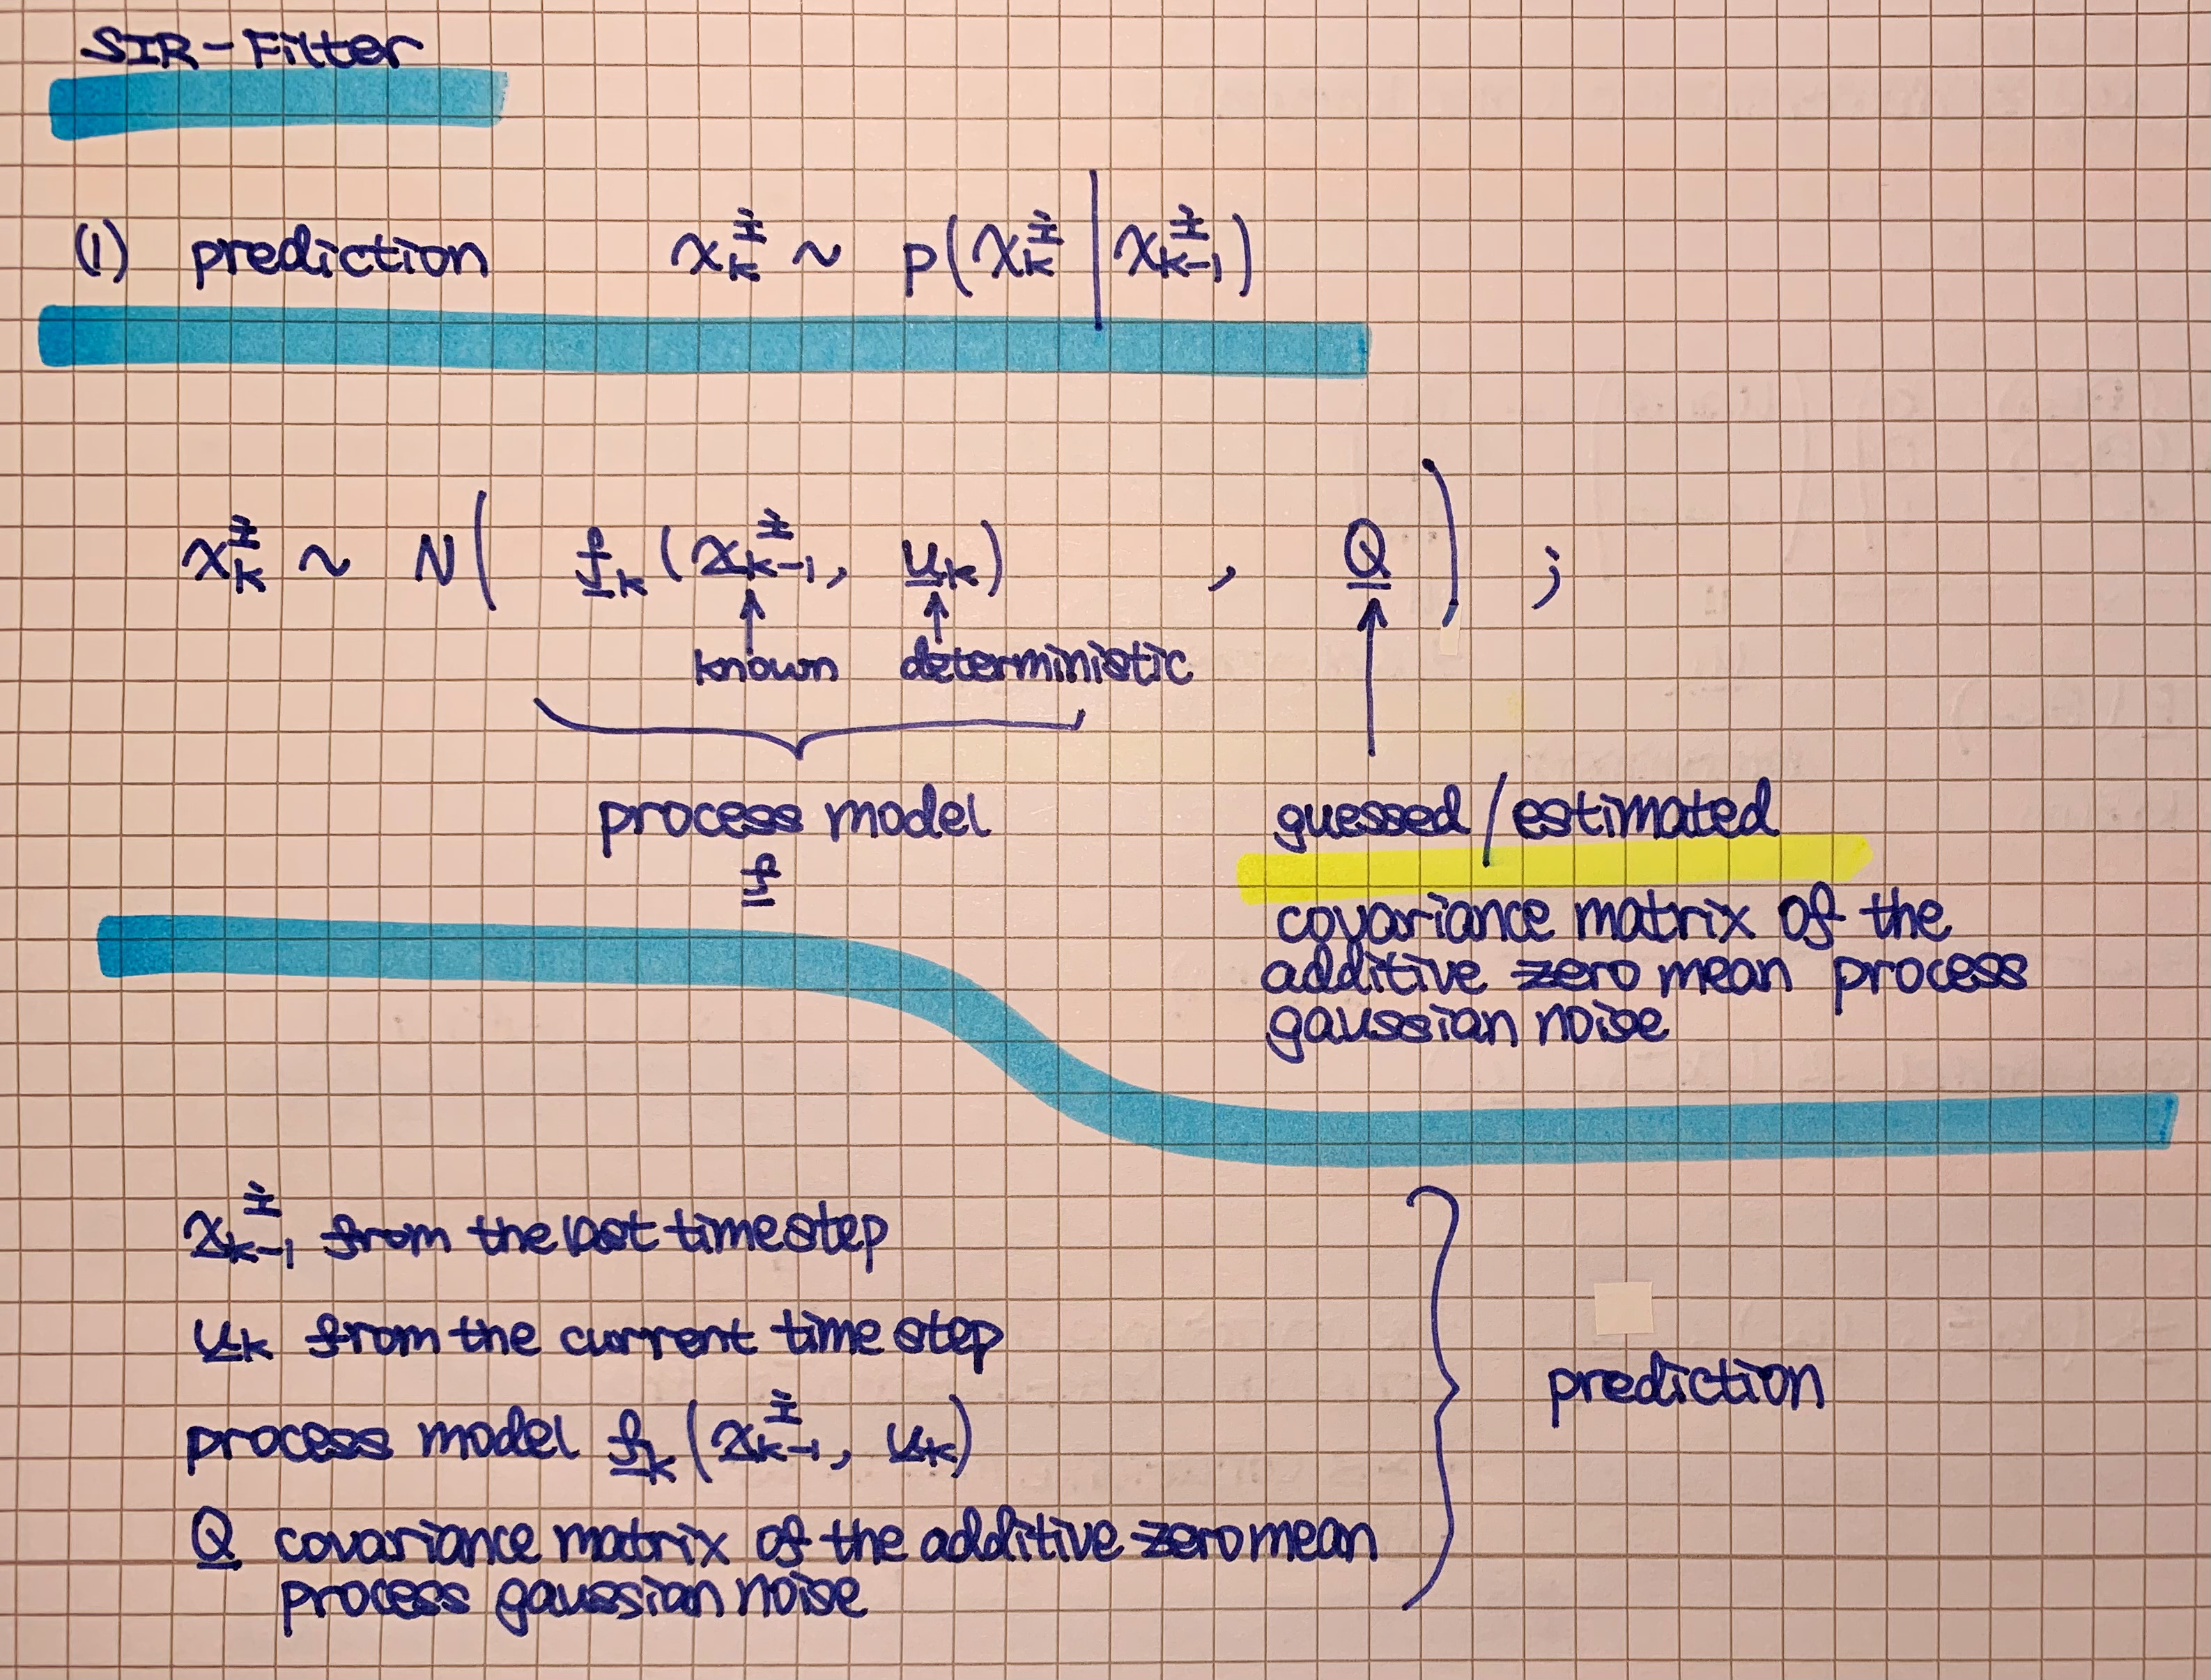 SIR-Filter
(1) prediction x_k^i ~ p(x_k^i | x_{k-1}^i)
x_k^i ~ N( f_k (x_{k-1}^i, u_k) , Q ) ;
known deterministic
process model
f
guessed / estimated
covariance matrix of the
additive zero mean process
gaussian noise
x_{k-1}^i from the last timestep
u_k from the current time step
process model f_k (x_{k-1}^i, u_k)
prediction
Q covariance matrix of the additive zero mean
process gaussian noise